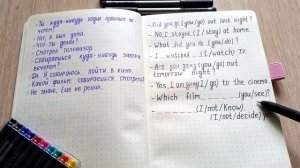 - Ты куда-нибудь ходил прошлым вечером?
- Нет, я был дома.
- Что ты делал?
- Смотрел телевизор.
- Собираешься куда-нибудь завтра вечером?
- Да. Я собираюсь пойти в кино.
- Какой фильм собираешься смотреть?
- Не знаю. Ещё не решил.
- Did you go (you/go) out last night?
- No, I stayed (I/stay) at home.
- What did you do (you/do)?
- I watched (I/watch) TV.
- Are you going (you/go) out tomorrow night?
- Yes, I am going (I/go) to the cinema
- Which film (you/see)?
- (I/not/know).
(I/not/decide)